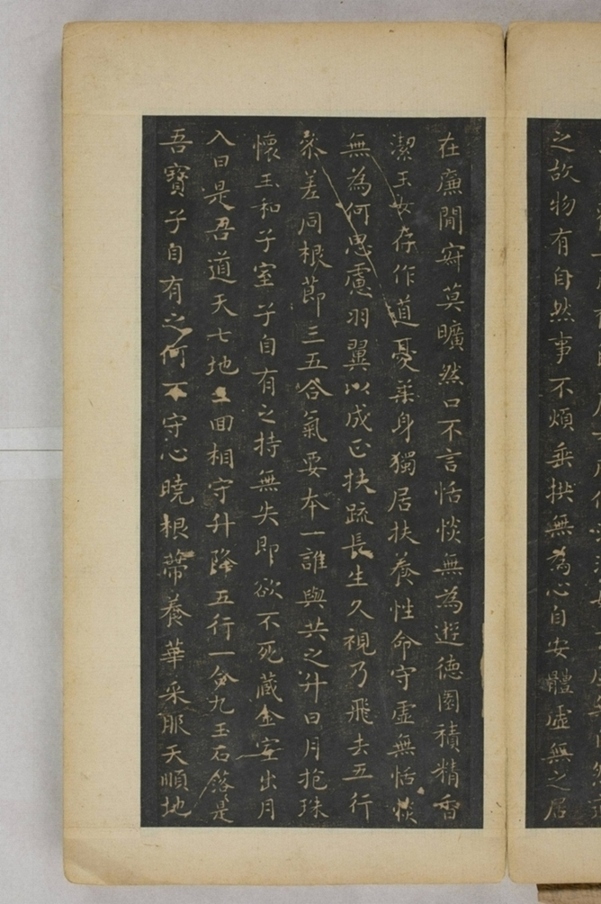 之故物有自然事不煩垂拱無為心自安體虛無之居
在廉閒寂莫曠然口不言恬惔無為遊德園積精香
潔玉女存作道憂柔身獨居扶養性命守虛無恬惔
無為何思慮羽翼以成正扶疏長生久視乃飛去五行
參差同根節三五合氣要本一誰與共之升日月抱珠
懷玉和子室子自有之持無失即欲不死藏金室出月
入日是吾道天七地三回相守升降五行一合九玉石落是
吾寶子自有之何不守心曉根蒂養華采服天順地